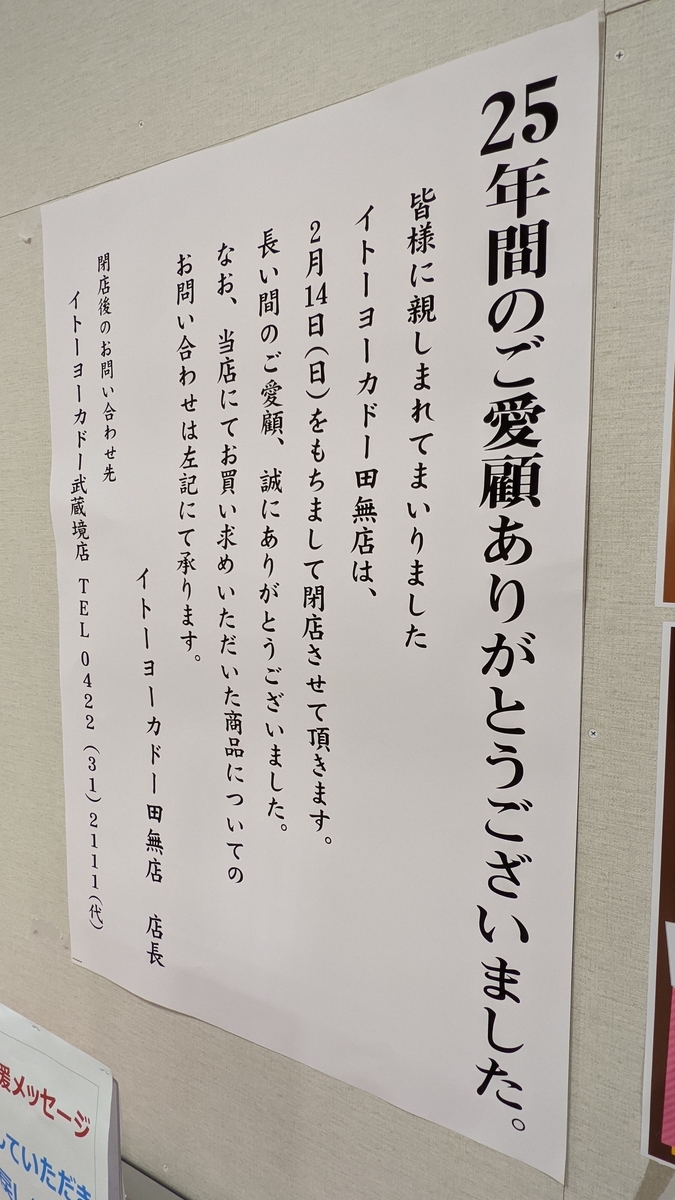 25年間のご愛顧ありがとうございました。
皆様に親しまれてまいりました
イトーヨーカドー田無店は、
2月14日(日)をもちまして閉店させて頂きます。
長い間のご愛顧、誠にありがとうございました。
なお、当店にてお買い求めいただいた商品についての
お問い合わせは左記にて承ります。
イトーヨーカドー田無店 店長
閉店後のお問い合わせ先
イトーヨーカドー武蔵境店 TEL 0422(31)2111(代)
援メッセージ
していただき